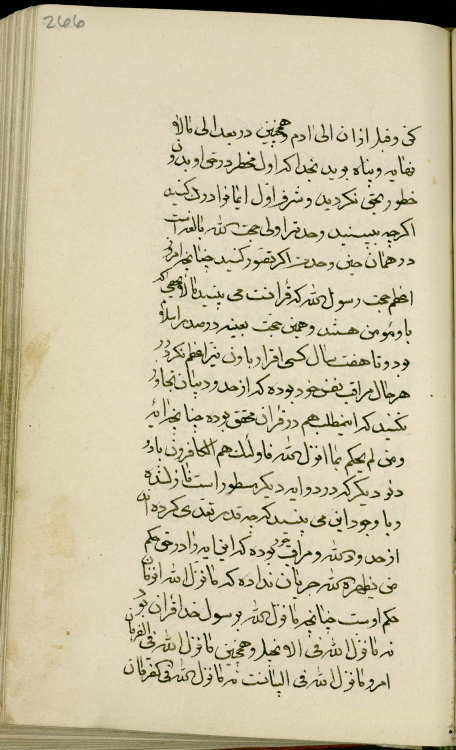 266
کنی و قبل از ان الی ادم و همچنین در بعد الی مالا
نهایه و پناه بوید بخدا که اول مخطر در حق او بدون
خطور بحق نکردید و شرف اول ایمانرا درک کنید
اگرچه ببینید وحدت اولی حجت الله بالغه است
در همان حین وحدت اگر تصور کنید چنانچه امروز
اعظم حجت رسول الله که قرانست می بینید مالا یحصی که
باو مؤمن هستند و همین حجت بعینه در صدر اسلام
بود و تا هفت سال کسی اقرار باو نیز اعظم نکرد در
هر حال مراقب نفس خود بوده که از حدود بیان تجاوز
نکنید که اینمطلب هم در قران محقق بوده چنانچه ایه
و من لم یحکم بما انزل الله فاولئک هم الکافرون با دو
دون دیگر که در دو ایه دیگر مسطور است نازل شده
و با وجود این می بینید که چه قدر تعدی کرده اند
از حدود الله و مراقب خود بوده که این ایه را در حق حکم
من یظهره الله جریان نداده که ما نزل الله انزمان
حکم اوست چنانچه ما نزل الله برسول خدا قران بود
نه ما نزل الله فی الانجیل و همچنین ما نزل الله فی الفرقان
امروز ما نزل الله فی البیانست نه ما نزل الله فی الفرقان